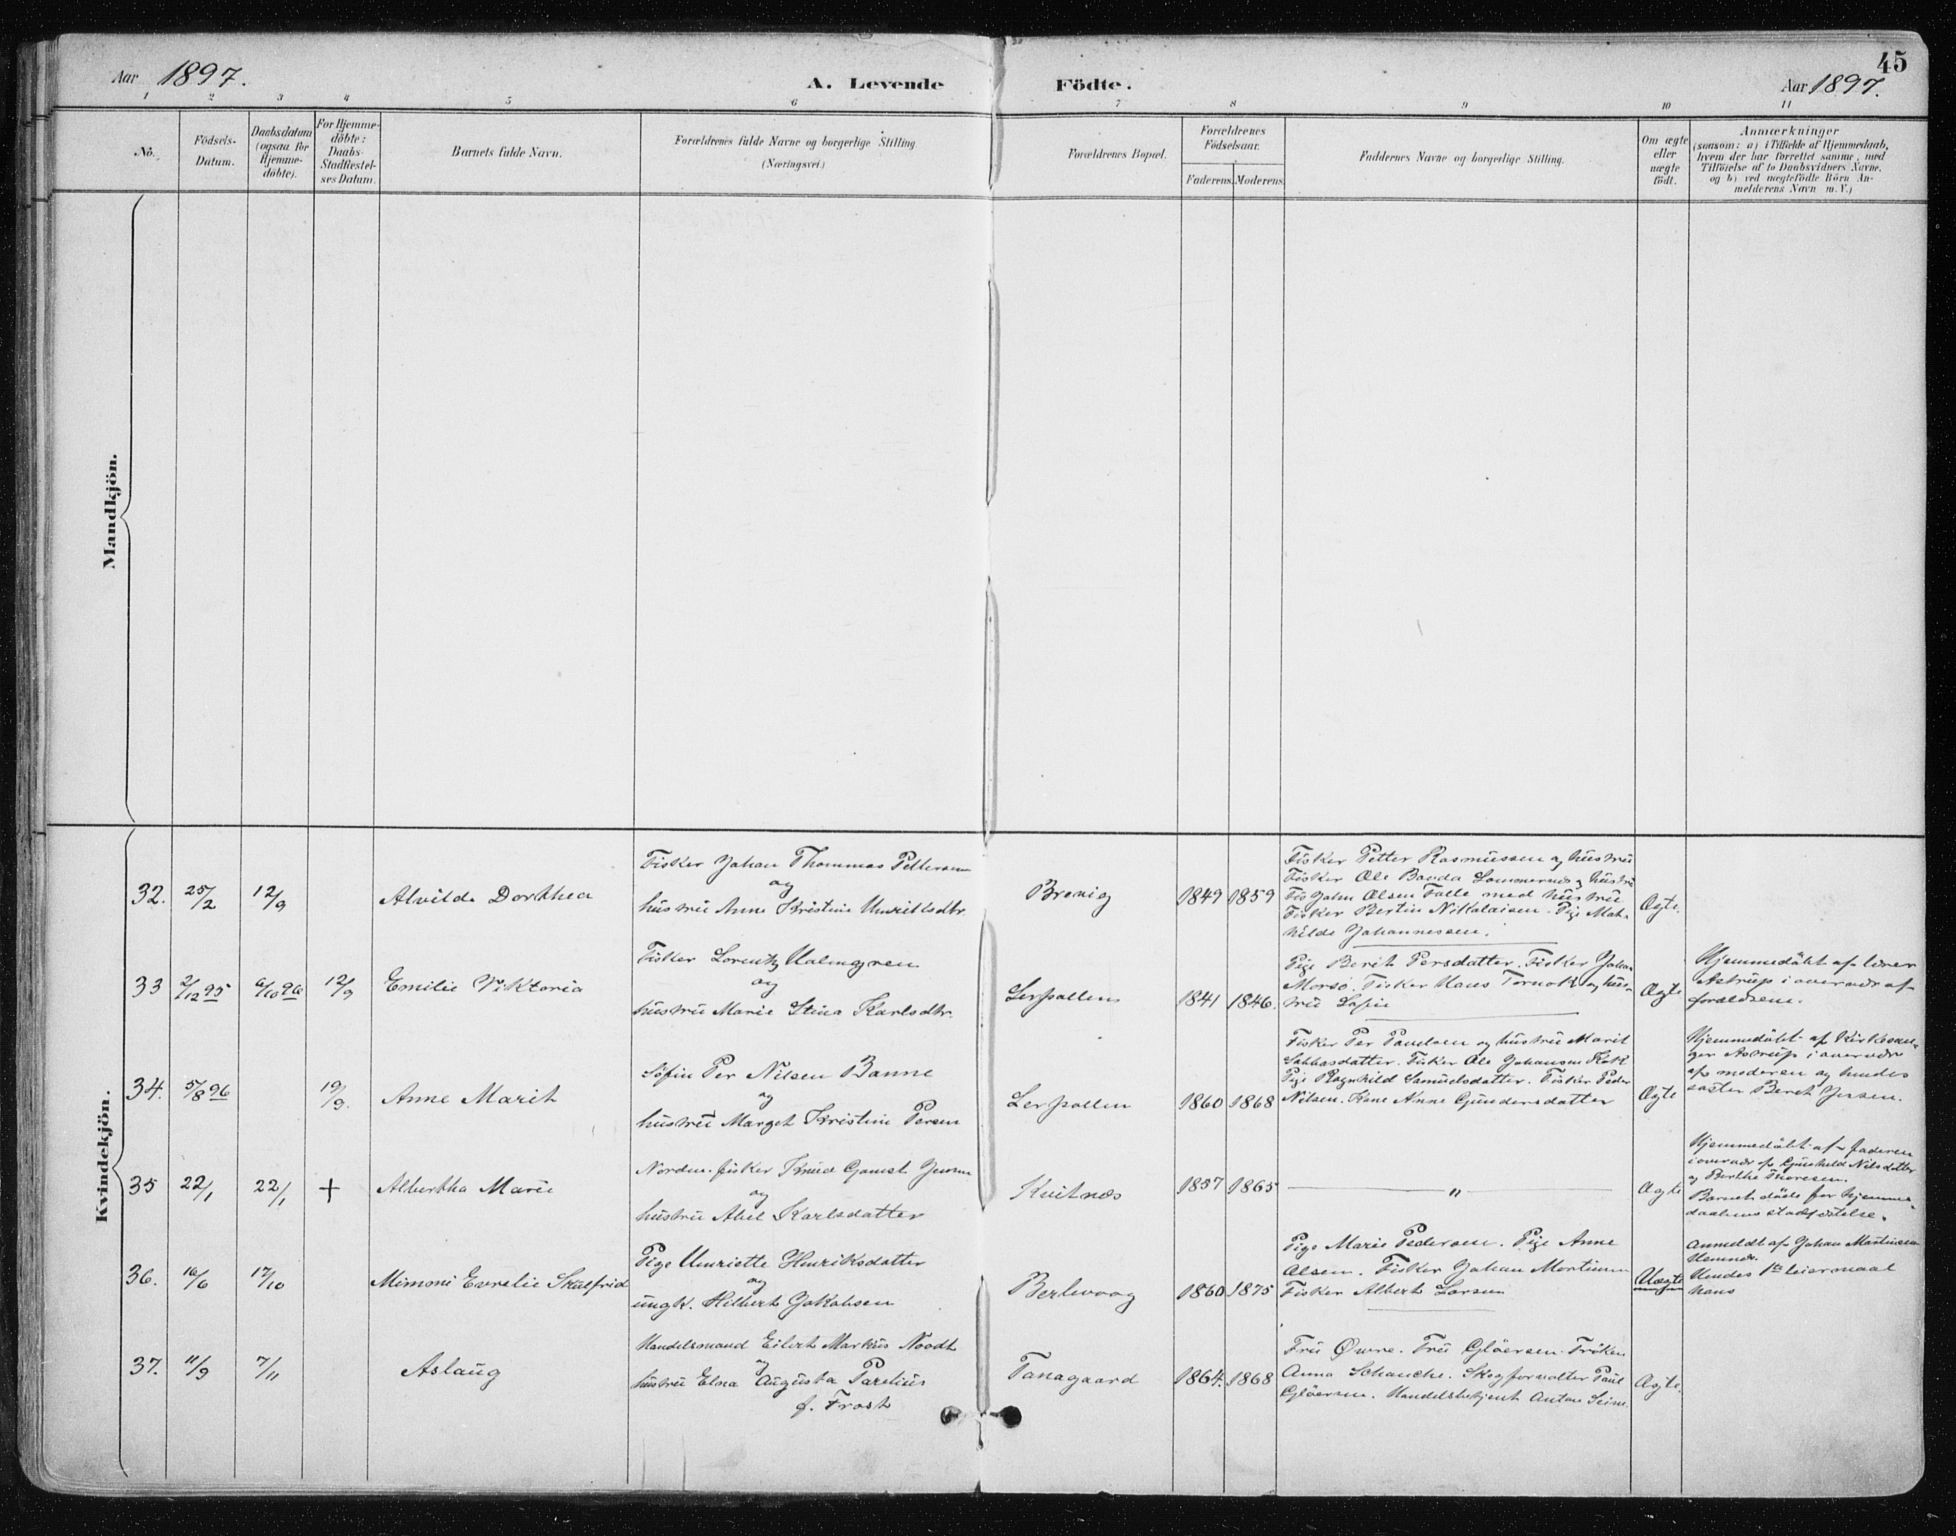 45
Aar 1897.
A. Levende Födte.
Aar 1897.
1 2 3 4 5 6 7 8 9 10 11
No.
Födsels-
Datum.
Daabsdatum
(ogsaa for
Hjemme-
döbte).
For Hjemme-
döbte:
Daabs-
Stadfæstel-
ses Datum.
Barnets fulde Navn.
Forældrenes fulde Navne og borgerlige Stilling.
(Næringsvei.)
Forældrenes Bopæl.
Forældrenes
Födselsaar.
Faderens. Moderens.
Faddernes Navne og borgerlige Stilling.
Om ægte
eller
uægte
födt.
Anmærkninger
(saasom: a) i Tilfælde af Hjemmedaab,
hvem der har forrettet samme, med
Tilföielse af to Daabsvidners Navne,
og b) ved uægtefödte Börn An-
melderens Navn m. V.)
Mandkjön.
Kvindekjön.
32. 25/2 12/9 Alvilde Dorthea
Fisker Johan Thommas Pettersen
og
hustru Anne Kristine Henriksdtr.
Brevig 1849 1859
Fisker Petter Rasmussen og hustru
Fisker Ole og hustru
Johan Olsen Falle med hustru
Fisker Bertin Nikolaisen. Pige Mat-
hilde Johannessen.
Ægte.
33 2/12 95 6/10 96 12/9 Emilie Viktoria
Fisker Lorentz Halmgren
og
hustru Marie Stina Karlsdtr.
Lerpollen 1841 1846.
Pige Berit Persdatter. Fisker Johan
Morsö. Fisker Hans og hus-
tru Sofie
Ægte
Hjemmedöbt af lærer
Astrup i overvær af
forældrene.
34. 5/8 96 19/9. Anne Marit
Söfin Per Nilsen Banne
og
hustru Marget Kristine Persen
Lerpollen 1860 1868
Fisker Per Paulsen og hustru Marit
Sabbasdatter. Fisker Ole Johansen
Pige Ragnhild Samuelsdatter. Fisker Peder
Nilsen. Kone Anne Gundersdatter
Ægte
Hjemmedöbt af Kirkesan-
ger Astrup i overvær
af moderen og hendes
söster Beret
35 22/1 22/1 + Albertha Marie
Fisker Knud Gamst
og
hustru Abel Karlsdatter
Kvitnæs 1857 1865
"
Ægte
Hjemmedöbt af faderen
i overvær af Gunhild Nilsdatter
og Berthe Thoresen.
Barnet döde för hjemme-
daabens stadfæstelse.
36. 16/6 17/10 Mimoni Evrelie Skulfrid
Pige Henriette Henriksdatter
og
ungk. Hilbert Jakobsen
Berlevaag 1860 1875
Pige Marie Pedersen. Pige Anne
Olsen. Fisker Johan Mortinsen
Fisker Albert Larsen
Uægte
Anmeldt af Johan Martinsen
Hendes 1ste leiermaal
hans
37. 11/9 7/11 Aslaug
Handelsmand Eilert Markus Noodt
og
hustru Elna Augusta Parelius
f. Frost
Tanagaard 1864. 1868
Fru Øwre. Fru Glöersen. Fröken
Anna Schanche. Skogforvalter Paul
Glöersen. Handelsbetjent Anton
Ægte.